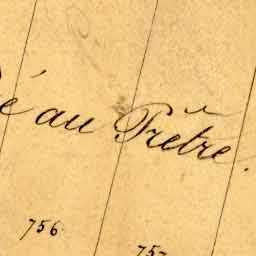 é au Prêtre.
756
757